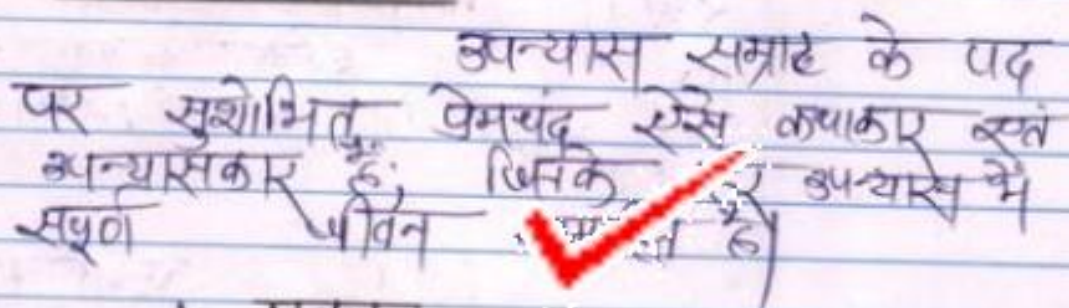 उपन्यास सम्राट के पद
पर सुशोभित प्रेमचंद ऐसे कथाकार एवं
उपन्यासकार हैं, जिनके उपन्यास में
संपूर्ण जीवन है।